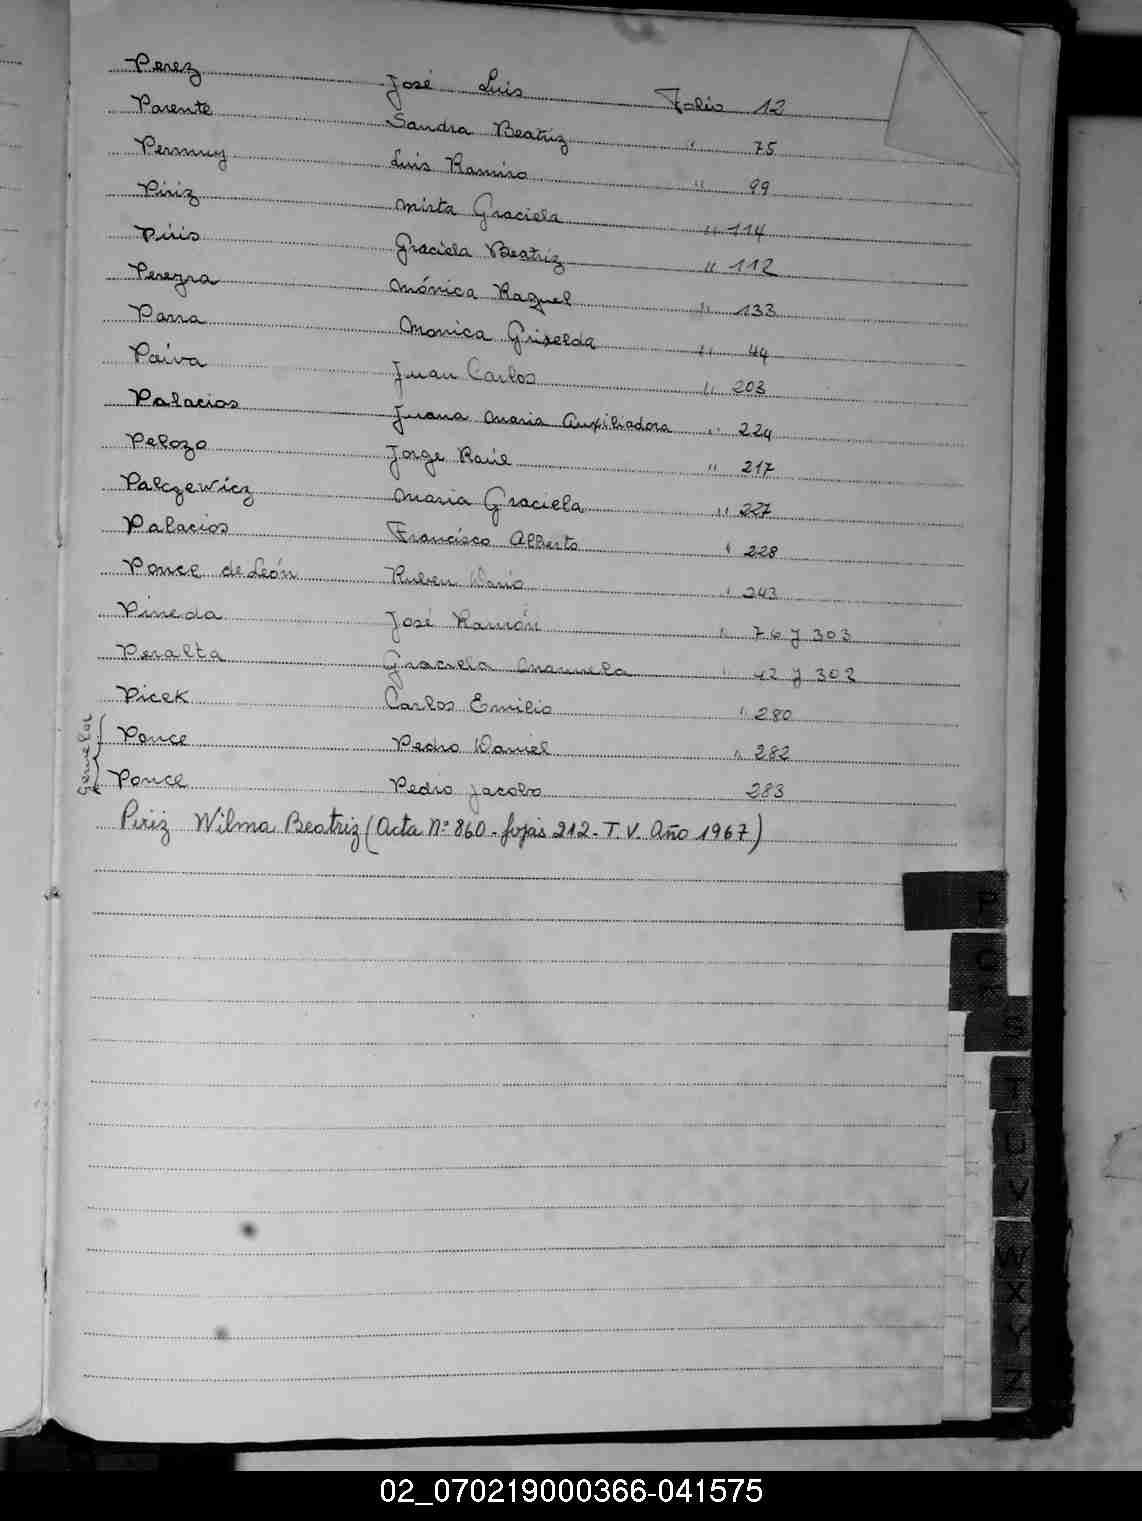 Perez José Luis Folio 12
Parente Sandra Beatriz " 75
Permuy Luis Ramiro " 99
Piriz Mirta Graciela " 114
Piris Graciela Beatriz " 112
Pereyra Mónica Raquel " 133
Parra Monica Griselda " 44
Paiva Juan Carlos " 203
Palacios Juana Maria Auxiliadora " 224
Pelozo Jorge Raúl " 217
Palczewicz Maria Graciela " 227
Palacios Francisco Alberto " 228
Ponce de León Ruben Dario " 243
Pineda José Ramón " 76 y 303
Peralta Graciela Manuela " 42 y 302
Picek Carlos Emilio " 280
Gemelos { Ponce Pedro Daniel " 282
Ponce Pedro Jacobo 283
Piriz Wilma Beatriz (Acta Nº 860 - fojas 212 - T. V. Año 1967)
P
Q
S
T
U
V
W
X
Y
Z
02_070219000366-041575